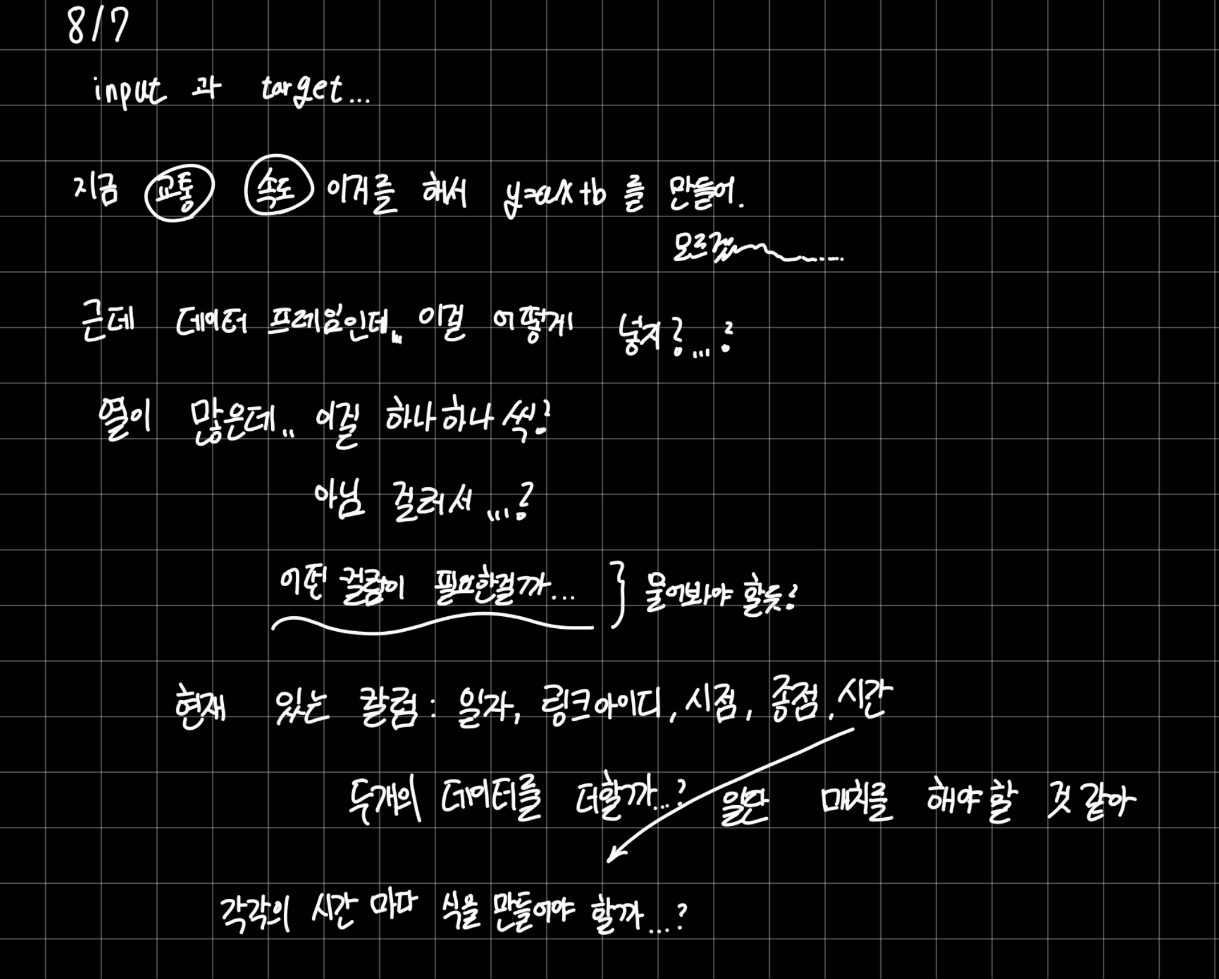 8/7
input 과 target...
지금 교통 속도 이거를 해서 y=ax+b 를 만들어.
모르겠
근데 데이터 프레임인데.. 이걸 어떻게 넣지?...?
열이 많은데.. 이걸 하나하나 씩?
아님 걸러서 ...?
어떤 컬럼이 필요한걸까... } 물어봐야 할듯?
현재 있는 칼럼 : 일자, 링크아이디, 시점, 종점, 시간
두개의 데이터를 더할까...? 일단 매치를 해야 할 것 같아
각각의 시간 마다 식을 만들어야 할까...?